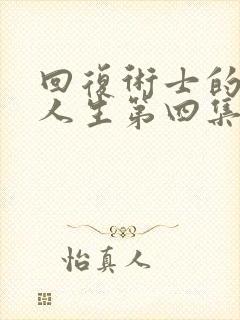 回復術士的
人生第四集
怡真人